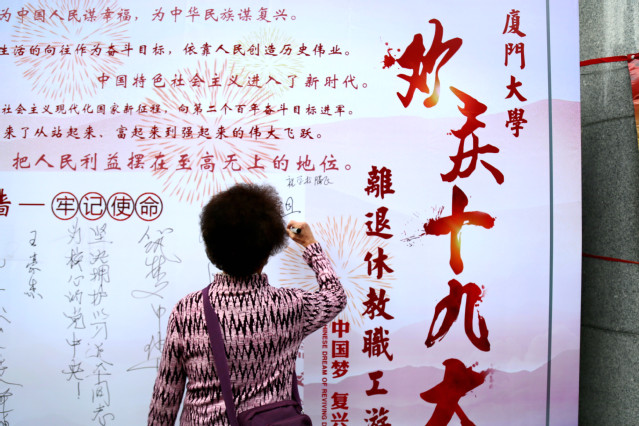 为中国人民谋幸福，为中华民族谋复兴。
生活的向往作为奋斗目标，依靠人民创造历史伟业。
中国特色社会主义进入了新时代。
社会主义现代化国家新征程，向第二个百年奋斗目标进军。
来了从站起来、富起来到强起来的伟大飞跃。
把人民利益摆在至高无上的地位。
墙—牢记使命
坚决拥护
为核心的党中央！
廈門大學
欢庆十九大
離退休教職工游
中国梦 复兴
CHINESE DREAM OF REVIVING